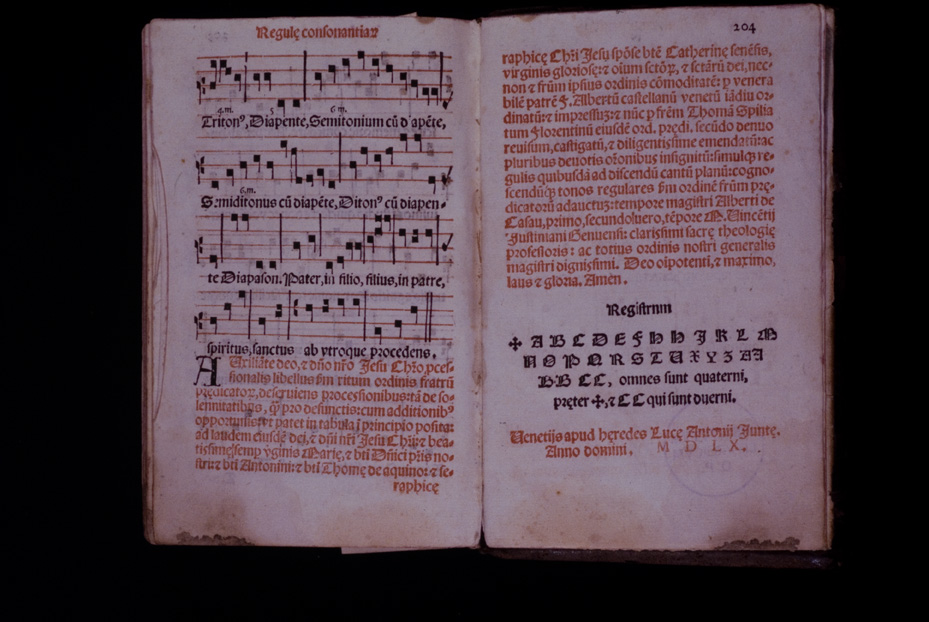 Regulę consonantiaꝝ
4.m. 5 6 m.
Tritonꝰ, Diapente, Semitonium cū d'apēte,
6.m.
Semiditonus cū diapēte, Ditonꝰ cū diapen-
te Diapason. Pater, in filio, filius, in patre,
spiritus, sanctus ab vtroque procedens.
Auxiliāte deo, ⁊ dño nro Jesu Chro, pces-
sionalis libellus ſm ritum ordinis fratrū
prędicatoꝝ, deseruiens processionibus: tā de so-
lennitatibus, ꝙ̄ pro defunctis: cum additionibꝰ
opportunis: vt patet in tabula ī principio posita:
ad laudem eiusdē dei, ⁊ dñi nri Jesu Chri: ⁊ bea-
tissimę semp v̄ginis Marię, ⁊ bti Dñici pris no-
stri: ⁊ bti Antonini: ⁊ bti Thomę de aquino: ⁊ se-
raphicę
204
raphicę Chri Jesu spōse btē Catherinę senēsis,
virginis gloriosę: ⁊ oīum sctōꝝ, ⁊ sctāꝝ dei, nec-
non ⁊ frūm ipsius ordinis cōmoditatē: p venera
bilē patrē F. Albertū castellanū venetū iādiu or-
dinatū: ⁊ impressuꝫ: ⁊ nūc p frēm Thomā Spilia
tum Florentinū eiusdē ord. prędi. secūdo denuo
reuisum, castigatū, ⁊ diligentissime emendatū: ac
pluribus deuotis orōnibus insignitū: simulqꝫ re-
gulis quibusdā ad discendū cantū planū: cogno-
scendūqꝫ tonos regulares ſm ordinē frūm prę-
dicatorū adauctuꝫ: tempore magistri Alberti de
Casau, primo, secundo vero, tēpore M. Vincētij
Justiniani Genuensi: clarissimi sacrę theologię
professoris: ac totius ordinis nostri generalis
magistri dignissimi. Deo oīpotenti, ⁊ maximo,
laus ⁊ gloria. Amen.
Registrum
✠ A B C D E F G H I K L M
N O P Q R S T U X Y Z AA
BB CC, omnes sunt quaterni,
pręter ✠, ⁊ CC qui sunt duerni.
Venetijs apud hęredes Lucę Antonij Juntę.
Anno domini, M D L X.